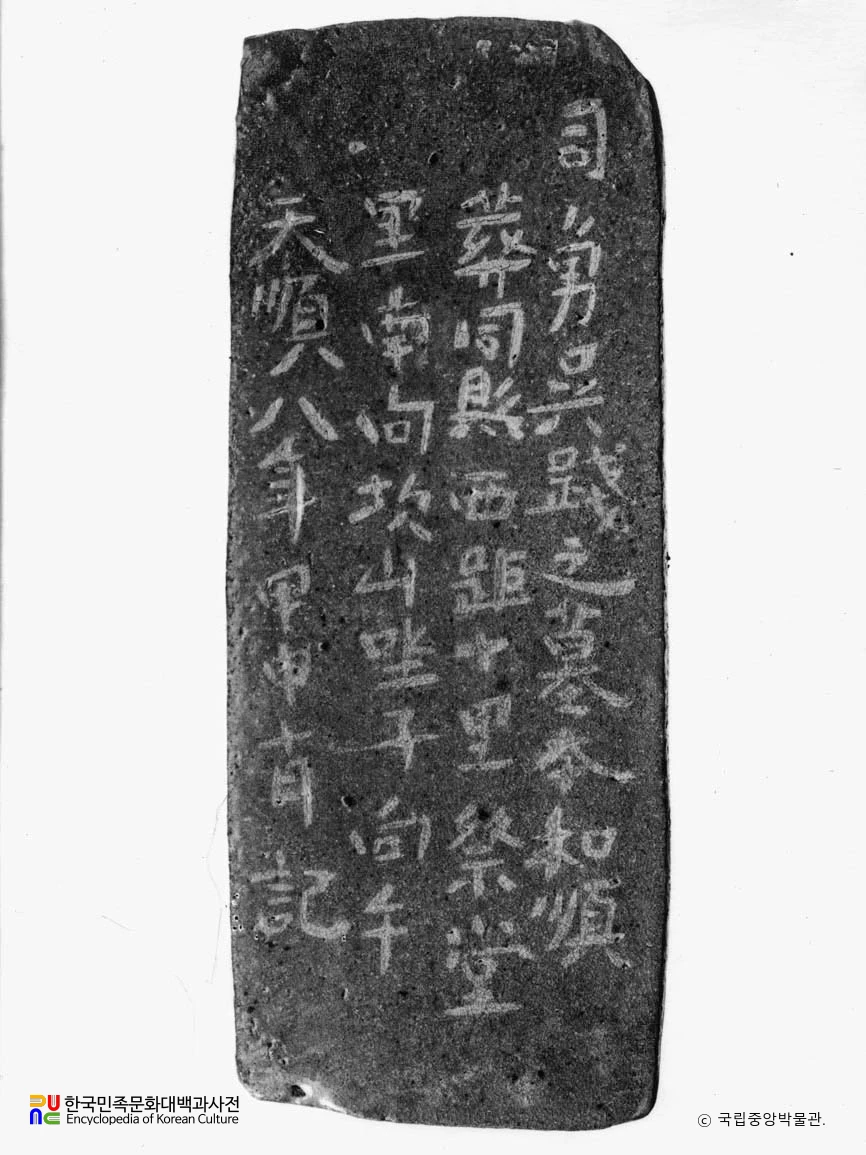 司勇吳踐之墓本和順
葬同縣西距十里祭堂
里南向坎山坐子向午
天順八年甲申十月 記
한국민족문화대백과사전
Encyclopedia of Korean Culture
ⓒ 국립중앙박물관.